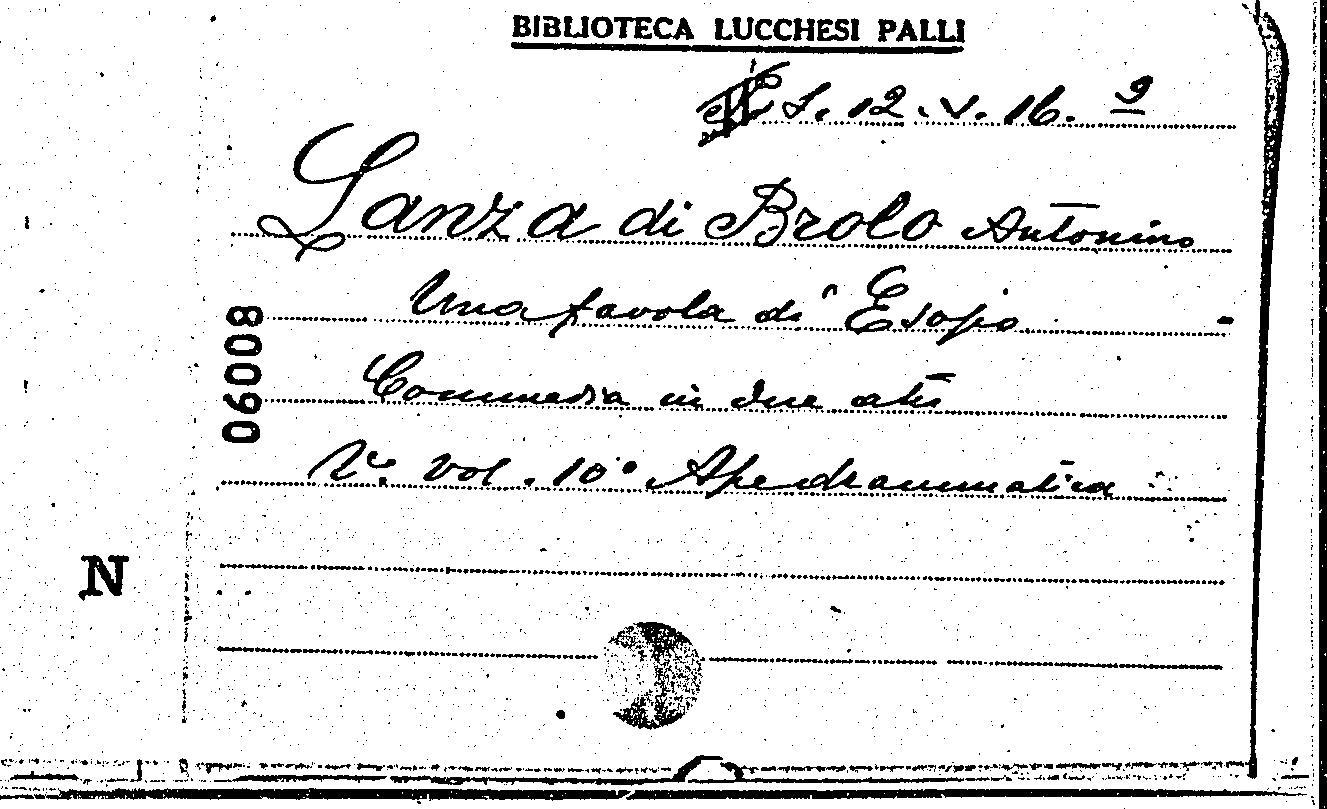 BIBLIOTECA LUCCHESI PALLI
S. 12. V. 16. 9
Lanza di Brolo Antonino
Una favola di Esopo
Commedia in due atti
Vº. vol. 10º Ape drammatica
06008
N